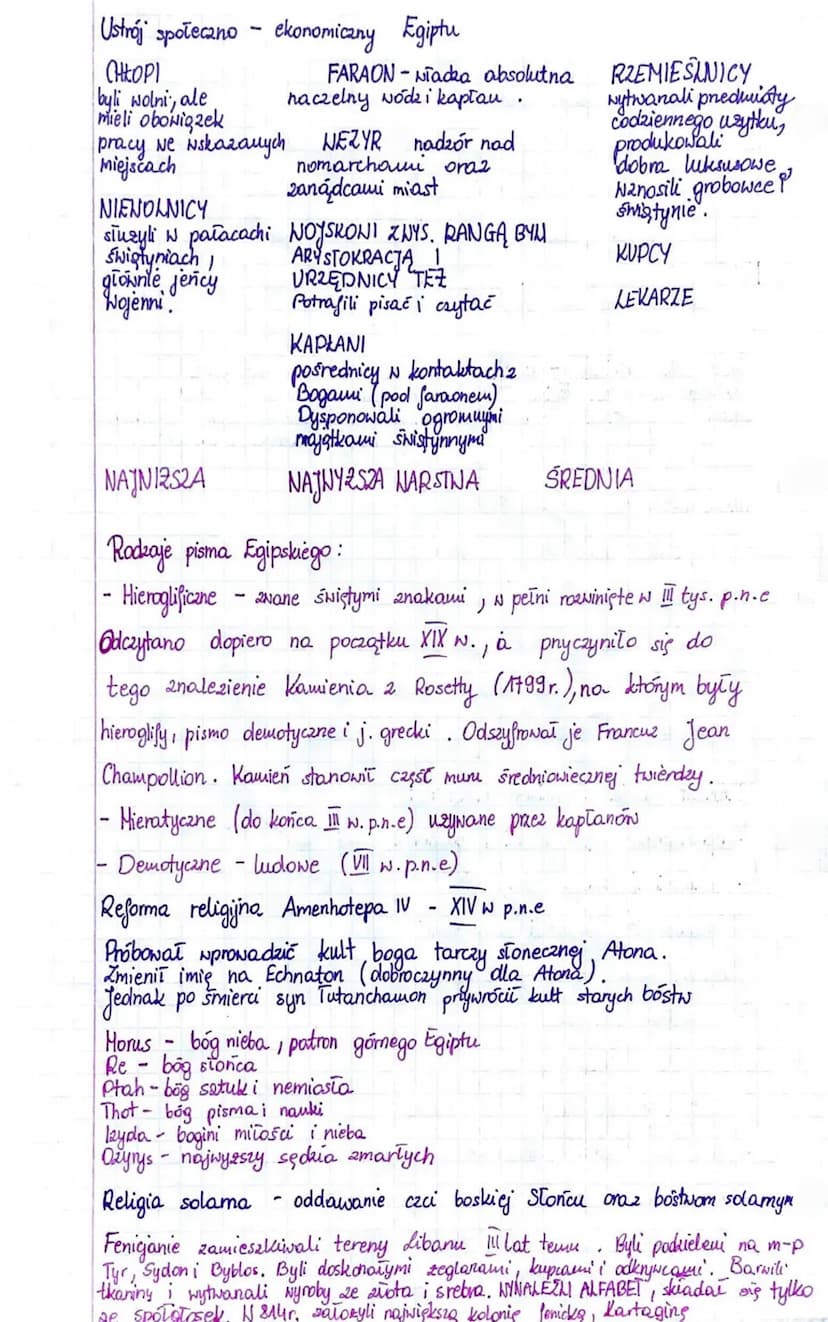 Ustrój społeczno - ekonomiczny Egiptu
CHŁOPI
byli wolni, ale
mieli obowiązek
pracy we wskazanych
miejscach
NIEWOLNICY
służyli w pałacach i
świątyniach,
głównie jeńcy
wojenni.
NAJNIŻSZA
FARAON - władza absolutna
naczelny wódz i kapłan.
WEZYR nadzór nad
nomarchami oraz
zarządcami miast
WOJSKOWI Z WYS. RANGĄ BYLI
ARYSTOKRACJĄ I
URZĘDNICY TEŻ
Potrafili pisać i czytać
KAPŁANI
pośrednicy w kontaktach z
Bogami (pod faraonem)
Dysponowali ogromnymi
majątkami świątynnymi
NAJWYŻSZA WARSTWA
RZEMIEŚLNICY
wytwarzali przedmioty
codziennego użytku,
produkowali
dobra luksusowe,
wznosili grobowce i
świątynie.
KUPCY
LEKARZE
ŚREDNIA
Rodzaje pisma Egipskiego:
- Hieroglificzne - zwane świętymi znakami, w pełni rozwinięte w III tys. p.n.e
Odczytano dopiero na początku XIX w., a przyczyniło się do
tego znalezienie Kamienia z Rosetty (1799r.), na którym były
hieroglify, pismo demotyczne i j. grecki. Odszyfrował je Francuz Jean
Champollion. Kamień stanowił część muru średniowiecznej twierdzy.
- Hieratyczne (do końca III w.p.n.e) używane przez kapłanów
- Demotyczne - ludowe (VII w.p.n.e)
Reforma religijna Amenhotepa IV - XIV w p.n.e
Próbował wprowadzić kult boga tarczy słonecznej Atona.
Zmienił imię na Echnaton (dobroczynny dla Atona).
Jednak po śmierci syn Tutanchamon przywrócił kult starych bóstw
Horus - bóg nieba, patron górnego Egiptu
Re - bóg słońca
Ptah - bóg sztuk i rzemiosła
Thot - bóg pisma i nauki
Izyda - bogini miłości i nieba
Ozyrys - najwyższy sędzia zmarłych
Religia solarna - oddawanie czci boskiej Słońcu oraz bóstwom solarnym
Fenicjanie zamieszkiwali tereny Libanu III lat temu. Byli podzieleni na m-p
Tyr, Sydon i Byblos. Byli doskonałymi żeglarzami, kupcami i odkrywcami. Barwili
tkaniny i wytwarzali wyroby ze złota i srebra. WYNALEŹLI ALFABET, składał się tylko
ze spółgłosek. W 814r. założyli największą kolonię fenicką, Kartaginę